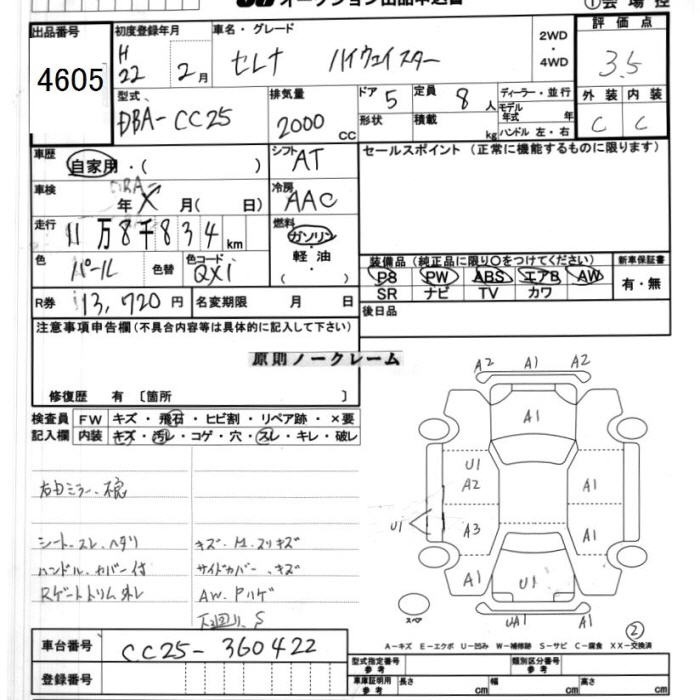 オークション出品申込書
①会場控
出品番号 4605
初度登録年月 H 22 2月
車名・グレード セレナ ハイウェイスター
2WD・4WD
評価点 3.5
型式 DBA-CC25
排気量 2000 cc
ドア 5 定員 8人
形状 積載 kg
ディーラー・並行
モデル年式 年
ハンドル 左・右
外装 内装
C C
車歴 自家用・( )
シフト AT
セールスポイント (正常に機能するものに限ります)
車検 年 X 月( 日)
冷房 AAC
走行 11万8千834 km
燃料 ガソリン・軽油 ( )
色 パール 色替 色コード QX1
装備品 (純正品に限り○をつけてください)
新車保証書 有・無
PS PW ABS エアB AW
SR ナビ TV カワ
R券 13,720円 名変期限 月 日
後日品
注意事項申告欄(不具合内容等は具体的に記入して下さい)
原則ノークレーム
修復歴 有 〔箇所 〕
検査員記入欄
FW キズ・飛石・ヒビ割・リペア跡・×要
内装 キズ・汚レ・コゲ・穴・スレ・キレ・破レ
右由ミラー不良
シートスレ、ヘタリ キズ・M.スリキズ
ハンドル、カバー付 サイドカバー、キズ
Rゲートトリム外レ AW.Pハゲ
下廻り、S
A2 A1 A2
A1
U1
A2 A1
U1
A3 A1
A1 U1 A1
UA1 A1
スペア
②
A-キズ E-エクボ U-凹み W-補修跡 S-サビ C-腐食 XX-交換済
車台番号 CC25-360422
型式指定番号 参考 類別区分番号 参考
登録番号
車庫証明用 参考 長さ cm 幅 cm 高さ cm